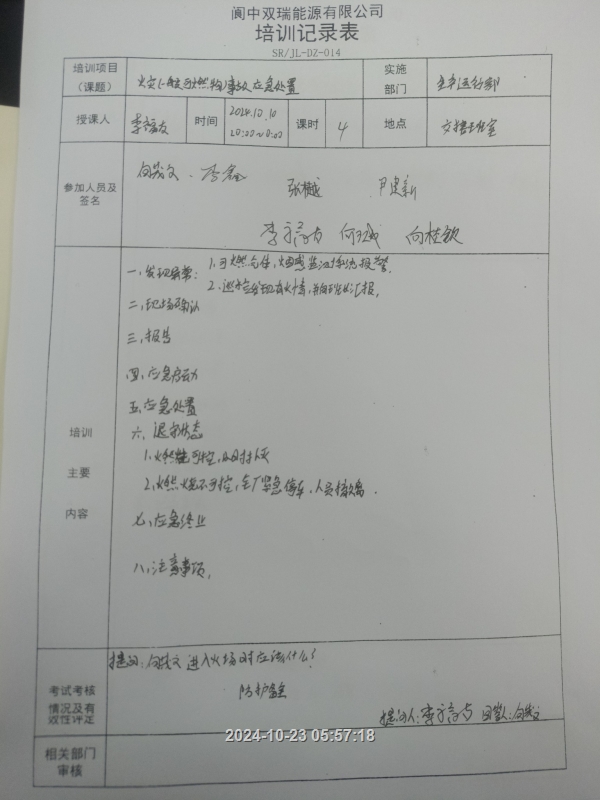 阆中双瑞能源有限公司
培训记录表
SR/JL-DZ-014
培训项目（课题） 火灾(一般可燃物)事故应急处置 实施部门 生产运行部
授课人 时间 2024.10.10 课时 4 地点 交接班室
参加人员及签名
张樾
何 向桂钦
培训主要内容
一、发现异常：1.可燃气体、烟感监测系统报警。
2.巡检发现有火情，并向班长汇报。
二、现场确认
三、报告
四、应急启动
五、应急处置
六、退守状态
1.火燃能可控，及时扑灭
2.火燃火不可控，全厂紧急停车，人员撤离。
七、应急终止
八、注意事项。
考试考核情况及有效性评定
提问：进入火场时应该什么？
防护
提问人： 回答人：
相关部门审核
2024-10-23 05:57:18